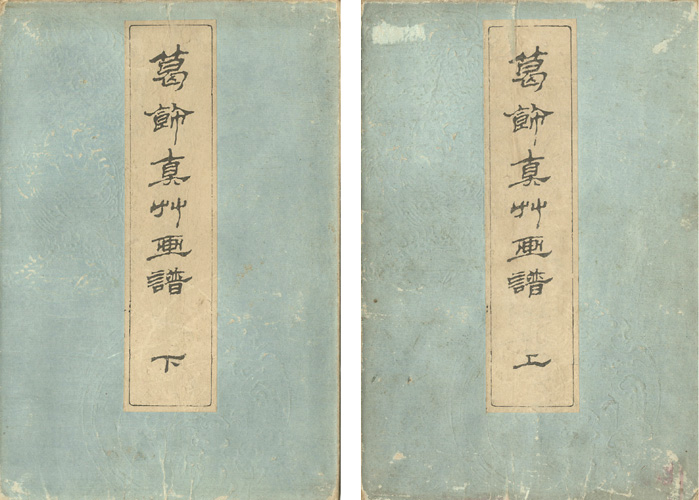 葛飾真艸画譜 上
葛飾真艸画譜 下